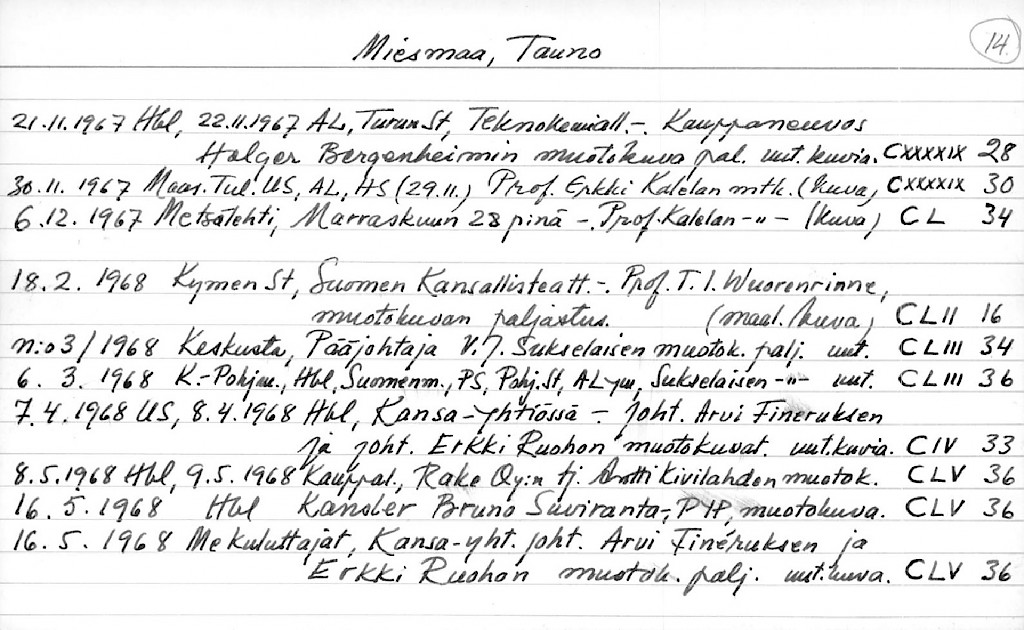 14.
Miesmaa, Tauno
21.11.1967 Hbl, 22.11.1967 AL, Turun St, Teknokemiall.-. Kauppaneuvos
Holger Bergenheimin muotokuva pal. uut. kuvia. CXXXXIX 28
30.11.1967 Maas. Tul. US, AL, HS (29.11.) Prof. Erkki Kalelan mtk. (kuva) CXXXXIX 30
6.12.1967 Metsälehti, Marraskuun 28 pinä -. Prof. Kalelan -"- (kuva) CL 34
18.2. 1968 Kymen St, Suomen Kansallisteatt.-. Prof. T. I. Wuorenrinne,
muotokuvan paljastus. (maal. kuva) CLII 16
n:o 3/1968 Keskusta, Pääjohtaja V. J. Sukselaisen muotok. palj. uut. CLIII 34
6. 3. 1968 K.-Pohjm., Hbl, Suomenm., PS, Pohj. St, AL ym, Sukselaisen -"- uut. CLIII 36
7.4.1968 US, 8.4.1968 Hbl, Kansa-yhtiössä - joht. Arvi Fineruksen
ja joht. Erkki Ruohon muotokuvat. uut. kuvia. CIV 33
8.5.1968 Hbl, 9.5.1968 Kauppal., Rake Oy:n tj. Antti Kivilahden muotok. CLV 36
16. 5. 1968 Hbl Kansler Bruno Suviranta-, PH, muotokuva. CLV 36
16. 5. 1968 Me kuluttajat, Kansa-yht. joht. Arvi Fineruksen ja
Erkki Ruohon muotok. palj. uut. kuva. CLV 36